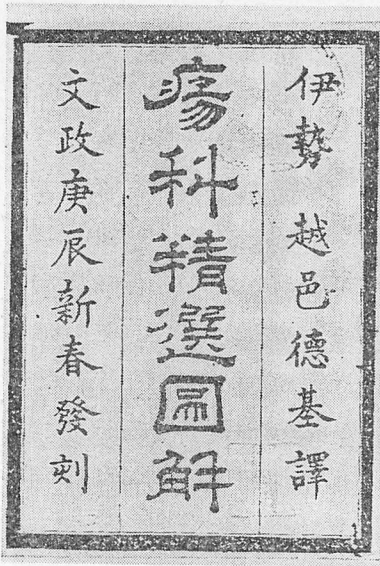 伊勢 越邑德基譯
瘍科精選圖解
文政庚辰新春發刻